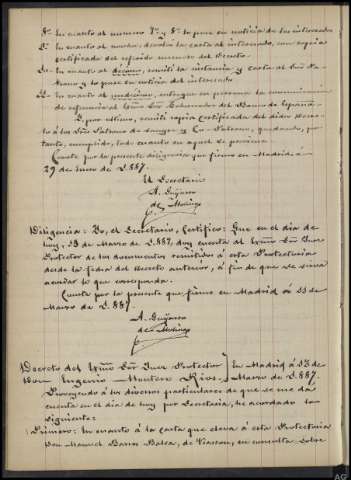 8º En cuanto al numero 7º y 8º lo puse en noticia de los interesados
9º En cuanto al noveno, devolví la carta al interesado, con copia
certificada del referido numero del Decreto.
10 En cuanto al décimo, remití la instancia y carta al Señor
y lo puse en noticia del interesado
11 En cuanto al undécimo, entregue en persona la comunicación
de referencia al Excmo Señor Gobernador del Banco de España
Y, por ultimo, remití copia certificada del dicho Decreto
á los Señores Patronos de y Co-Patronos, quedando, por
tanto, cumplido, todo cuanto en aquel se previene.
Conste por la presente diligencia que firmo en Madrid á
29 de Enero de 1.887.
El Secretario
A. Guijarro
de
Diligencia: Yo, el Secretario, Certifico: Que en el dia de
hoy, 13 de Marzo de 1.887, doy cuenta al Excmo Señor Juez
Protector de los documentos remitidos á esta Protecturia
desde la fecha del Decreto anterior, á fin de que se sirva
acordar lo que corresponda.
Conste por la presente que firmo en Madrid á 13 de
Marzo de 1.887.
A. Guijarro
de
Decreto del Excmo Señor Juez Protector } En Madrid á 13 de
Don Eugenio Montero Rios. } Marzo de 1.887.
Proveyendo á los diversos particulares de que se me da
cuenta en el dia de hoy por Secretaria, he acordado lo
siguiente:
Primero: En cuanto á la carta que eleva á esta Protecturia
Don Manuel Barros Balsa, de Viascon, en consulta sobre